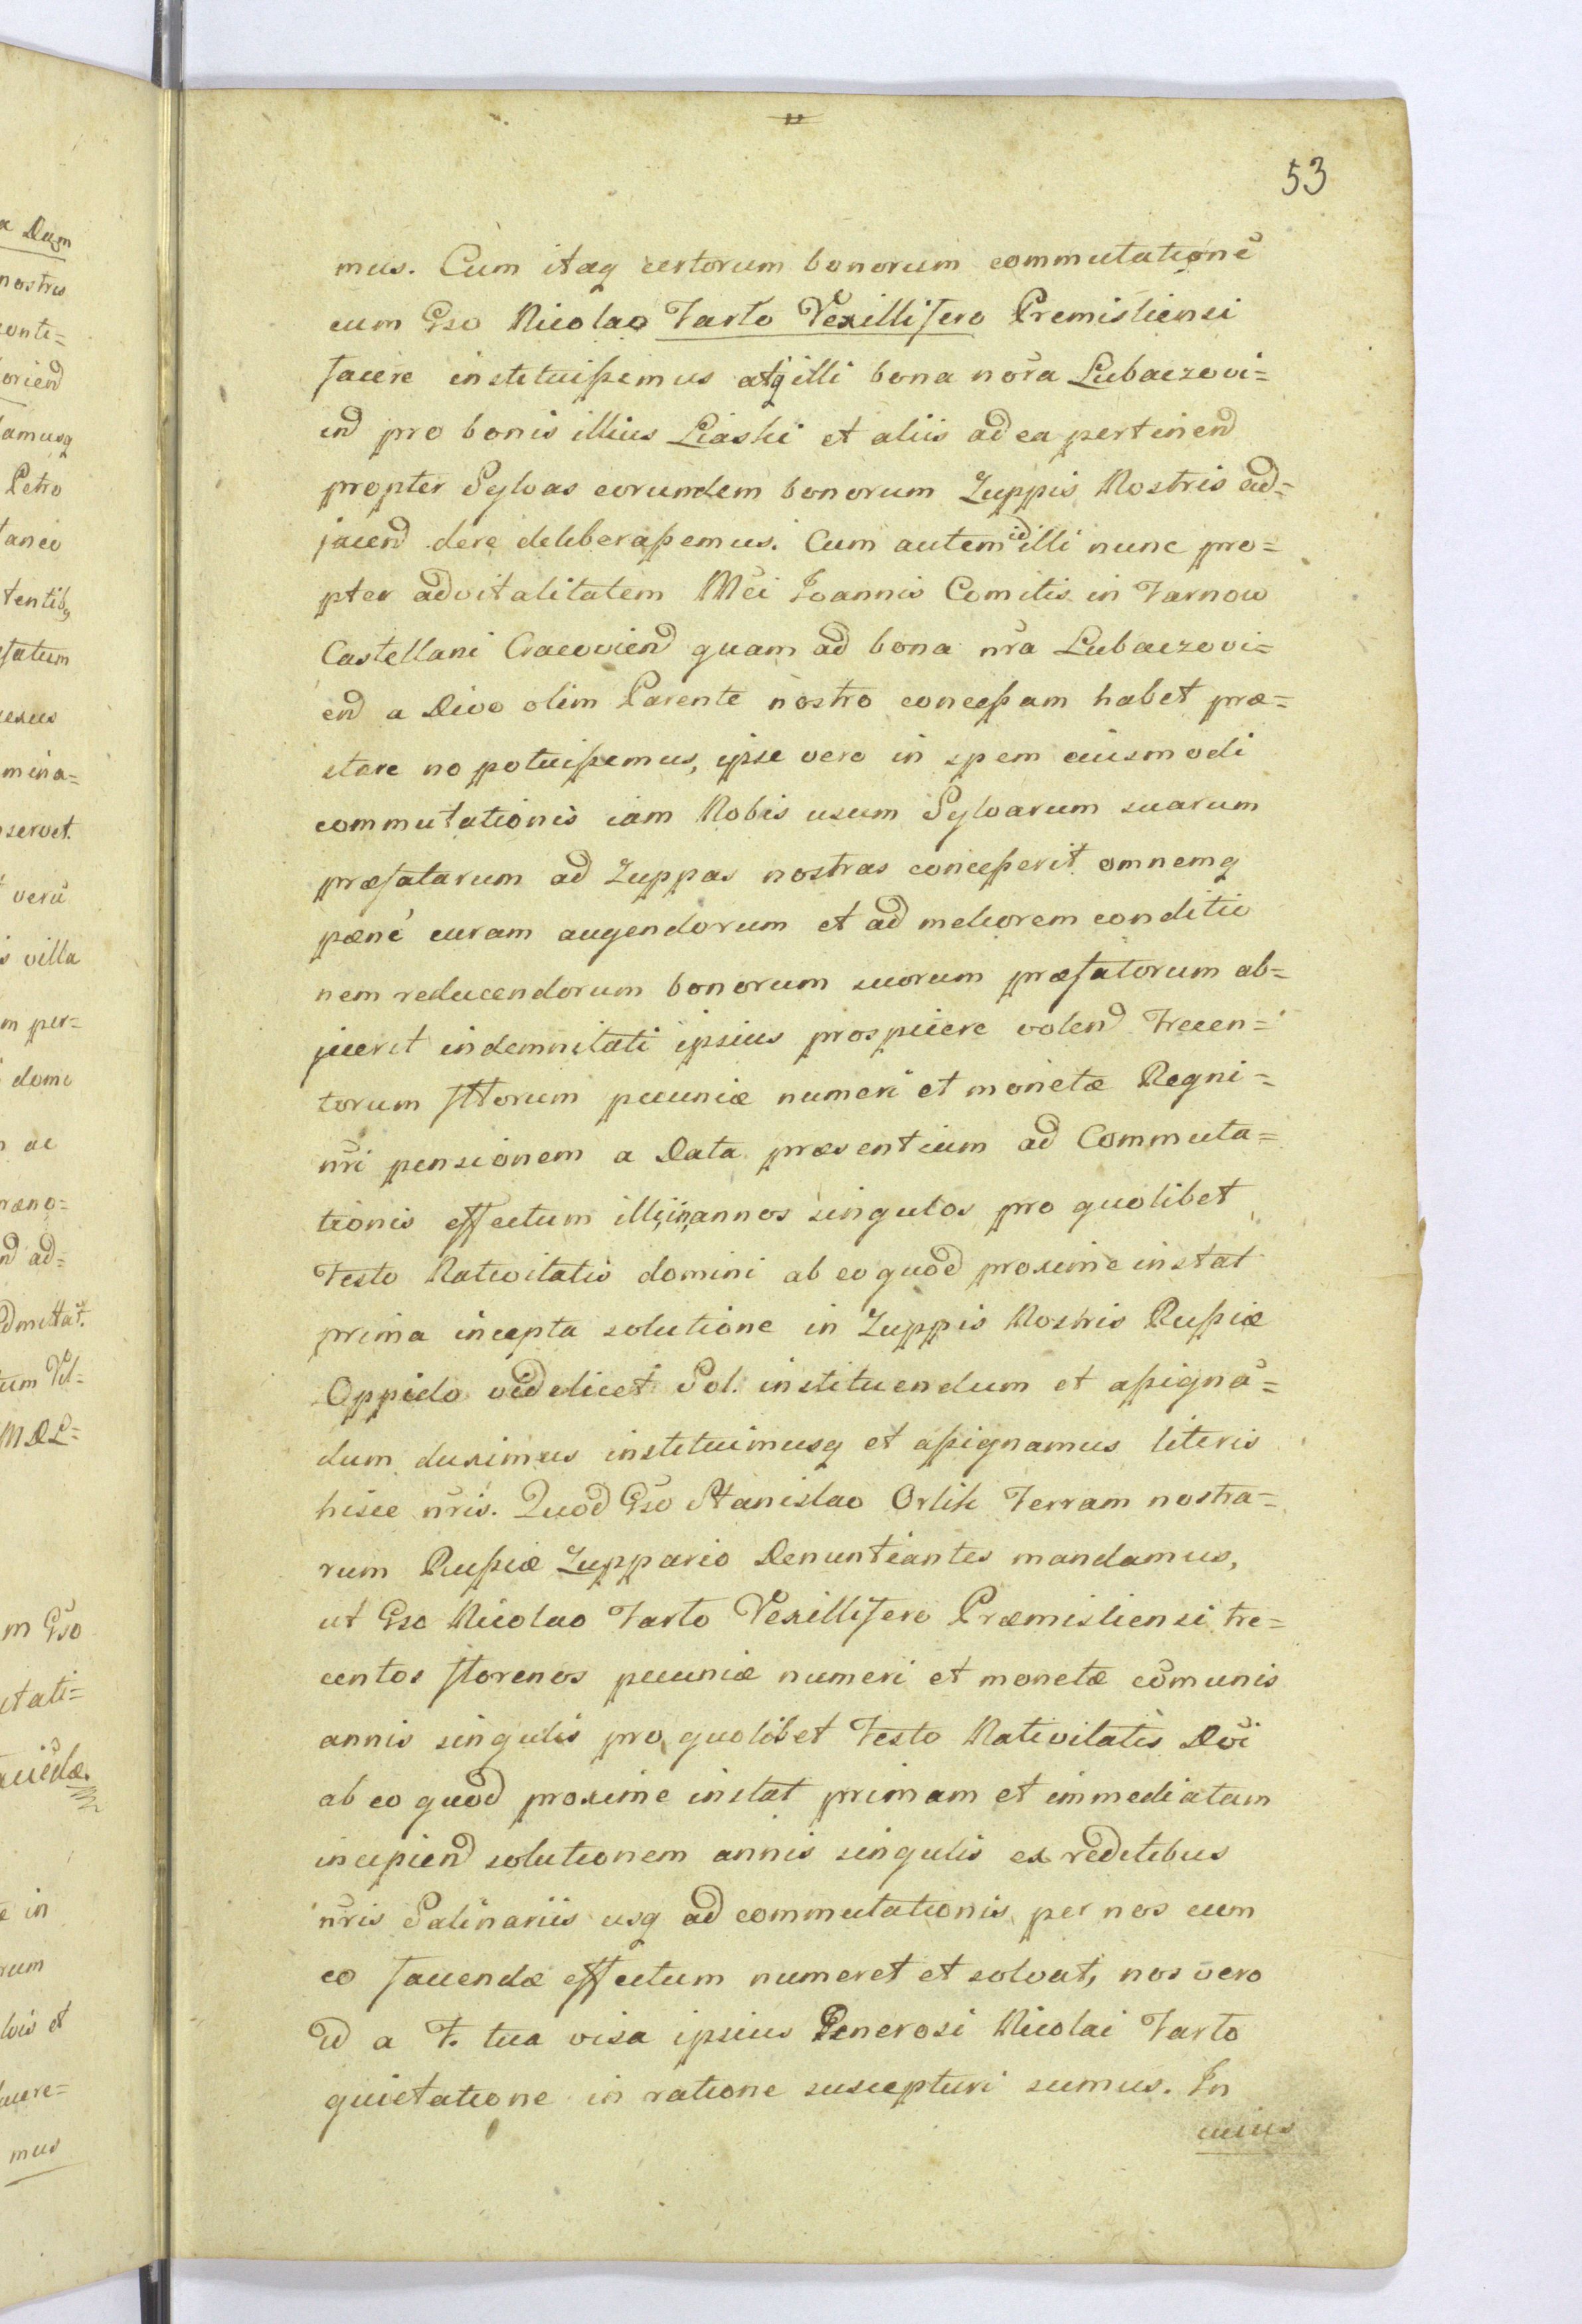 53
mus. Cum itaq certorum bonorum commutationē
cum Gso Nicolao Tarlo Vexillifero Premisliensi
facere instituissemus atq illi bona nõra Lubaczovi=
end pro bonis illius Liaski et aliis ad ea pertinend
propter Sylvas eorundem bonorum Zuppis Nostris ad=
jacend dere deliberassemus. Cum autem id illi nunc pro=
pter advitalitatem Mci Joannis Comitis in Tarnow
Castellani Cracoviend quam ad bona nra Lubaczovi=
end a Divo olim Parente nostro concessam habet præ=
stare no potuissemus, ipse vero in spem eiusmodi
commutationis iam Nobis usum Sylvarum suarum
præfatarum ad Zuppas nostras concesserit omnemq
pæne curam augendorum et ad meliorem conditio
nem reducendorum bonorum suorum præfatorum ab=
jicerit indemnitati ipsius prospicere volend Trecen=
torum flforum pecuniæ numeri et monetæ Regni=
nri pensionem a Data præsentium ad Commuta=
tionis effectum illi, in, annos singulos pro quolibet
Festo Nativitatis domini ab eo quod proxime instat
prima incepta solutione in Zuppis Nostris Russiæ
Oppido videlicet Sol. instituendum et assignã=
dum duximus instituimusq et assignamus literis
hisce nris. Quod Gso Stanislao Orlik Terram nostra=
rum Russiæ Zuppario Denuntiantes mandamus,
ut Gso Nicolao Tarlo Vexillifero Præmisliensi tre=
centos florenos pecuniæ numeri et monetæ cõmunis
annis singulis pro quolibet Festo Nativitatis Dni
ab eo quod proxime instat primam et immediatam
incipiend solutionem annis singulis ex reditibus
nris Salinariis usq ad commutationis per nos cum
eo faciendæ effectum numeret et solvat, nos vero
id a F. tua visa ipsius Generosi Nicolai Tarlo
quietatione in ratione suscepturi sumus. In
cuius